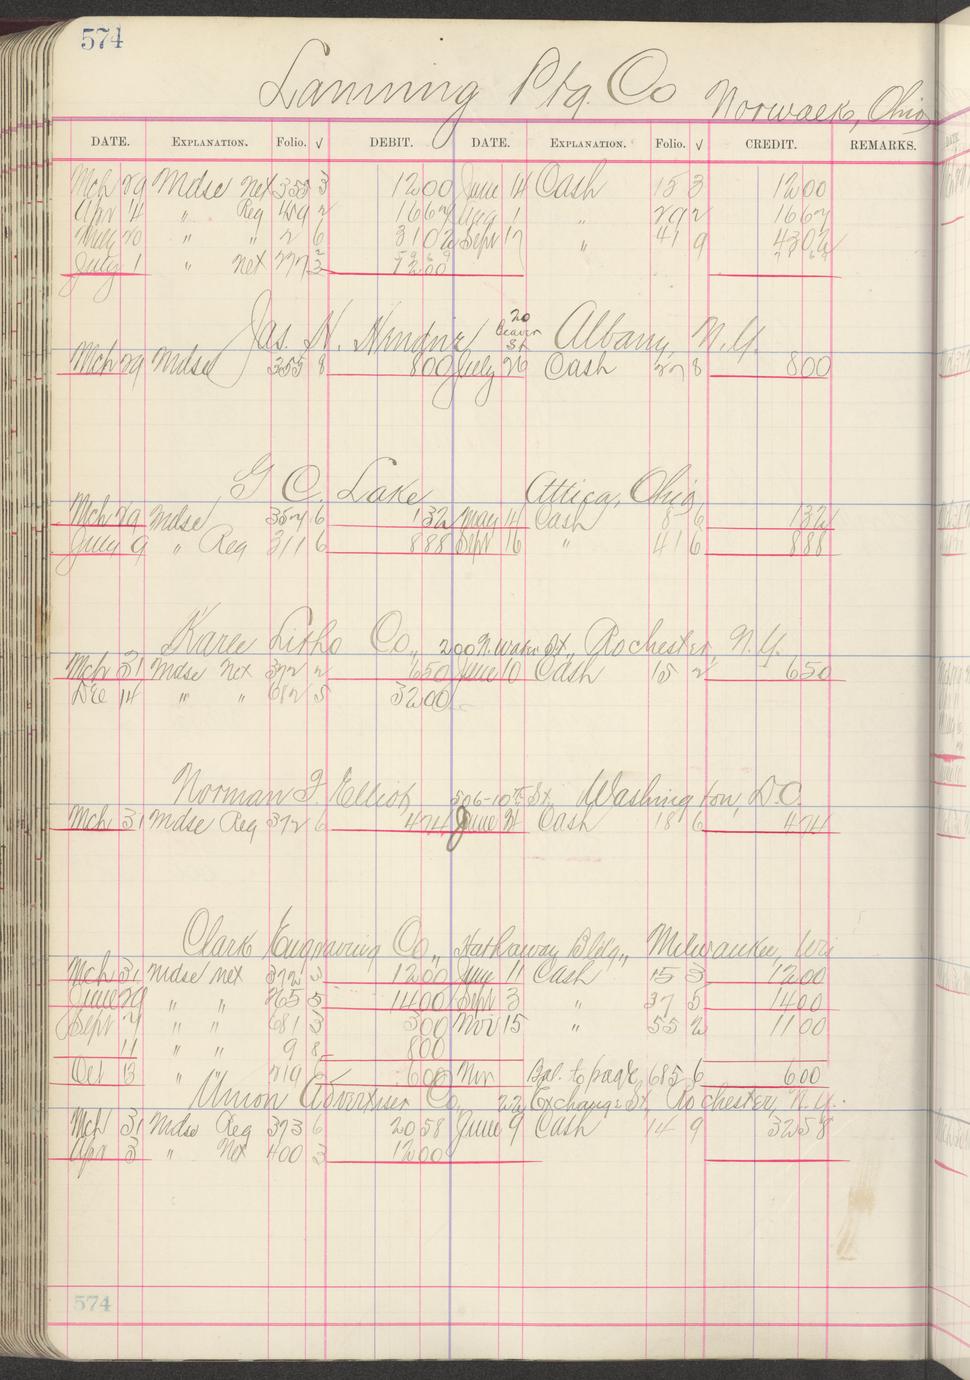 574
Lanning Ptg. Co Norwalk, Ohio
DATE. EXPLANATION. Folio. √ DEBIT. DATE. EXPLANATION. Folio. √ CREDIT. REMARKS.
Mch 29 Mdse Net 355 3 1200 June 14 Cash 15 3 1200
Apr 4 " Reg 429 2 1667 Aug 1 " 292 1667
May 20 " " 2 6 3102 Sept 17 " 41 9 4302
July 1 " Net 277 3 1200
Jas. H. 20 Beaver St Albany, N.Y.
Mch 29 Mdse 355 8 800 July 26 Cash 27 8 800
G C. Lake Attica, Ohio
Mch 29 Mdse 357 6 132 May 14 Cash 8 6 132
July 9 " Reg 311 6 888 Sept 16 " 41 6 888
Karle Litho Co., 200 N. Water St., Rochester, N.Y.
Mch 31 Mdse Net 372 2 650 June 10 Cash 15 2 650
Dec 14 " " 682 5 3200
Norman F. Elliott, 506-10th St Washington, D.C.
Mch 31 Mdse Reg 372 6 474 June Cash 18 6 474
Clark Engraving Co., Hathaway Bldg., Milwaukee, Wis
Mch 31 Mdse net 372 3 1200 June 11 Cash 15 3 1200
June 29 " " 265 5 1400 Sept 3 " 37 5 1400
Sept 7 " " 681 3 300 Nov 15 " 55 2 1100
11 " " 9 8 800
Oct 13 " 719 600 Nov Bal. to page 685 6 600
Union Advertiser Co, 22 Exchange St, Rochester, N.Y.
Mch 31 Mdse Reg 373 6 2058 June 9 Cash 14 9 3258
Apr 3 " Net 400 3 1200
574